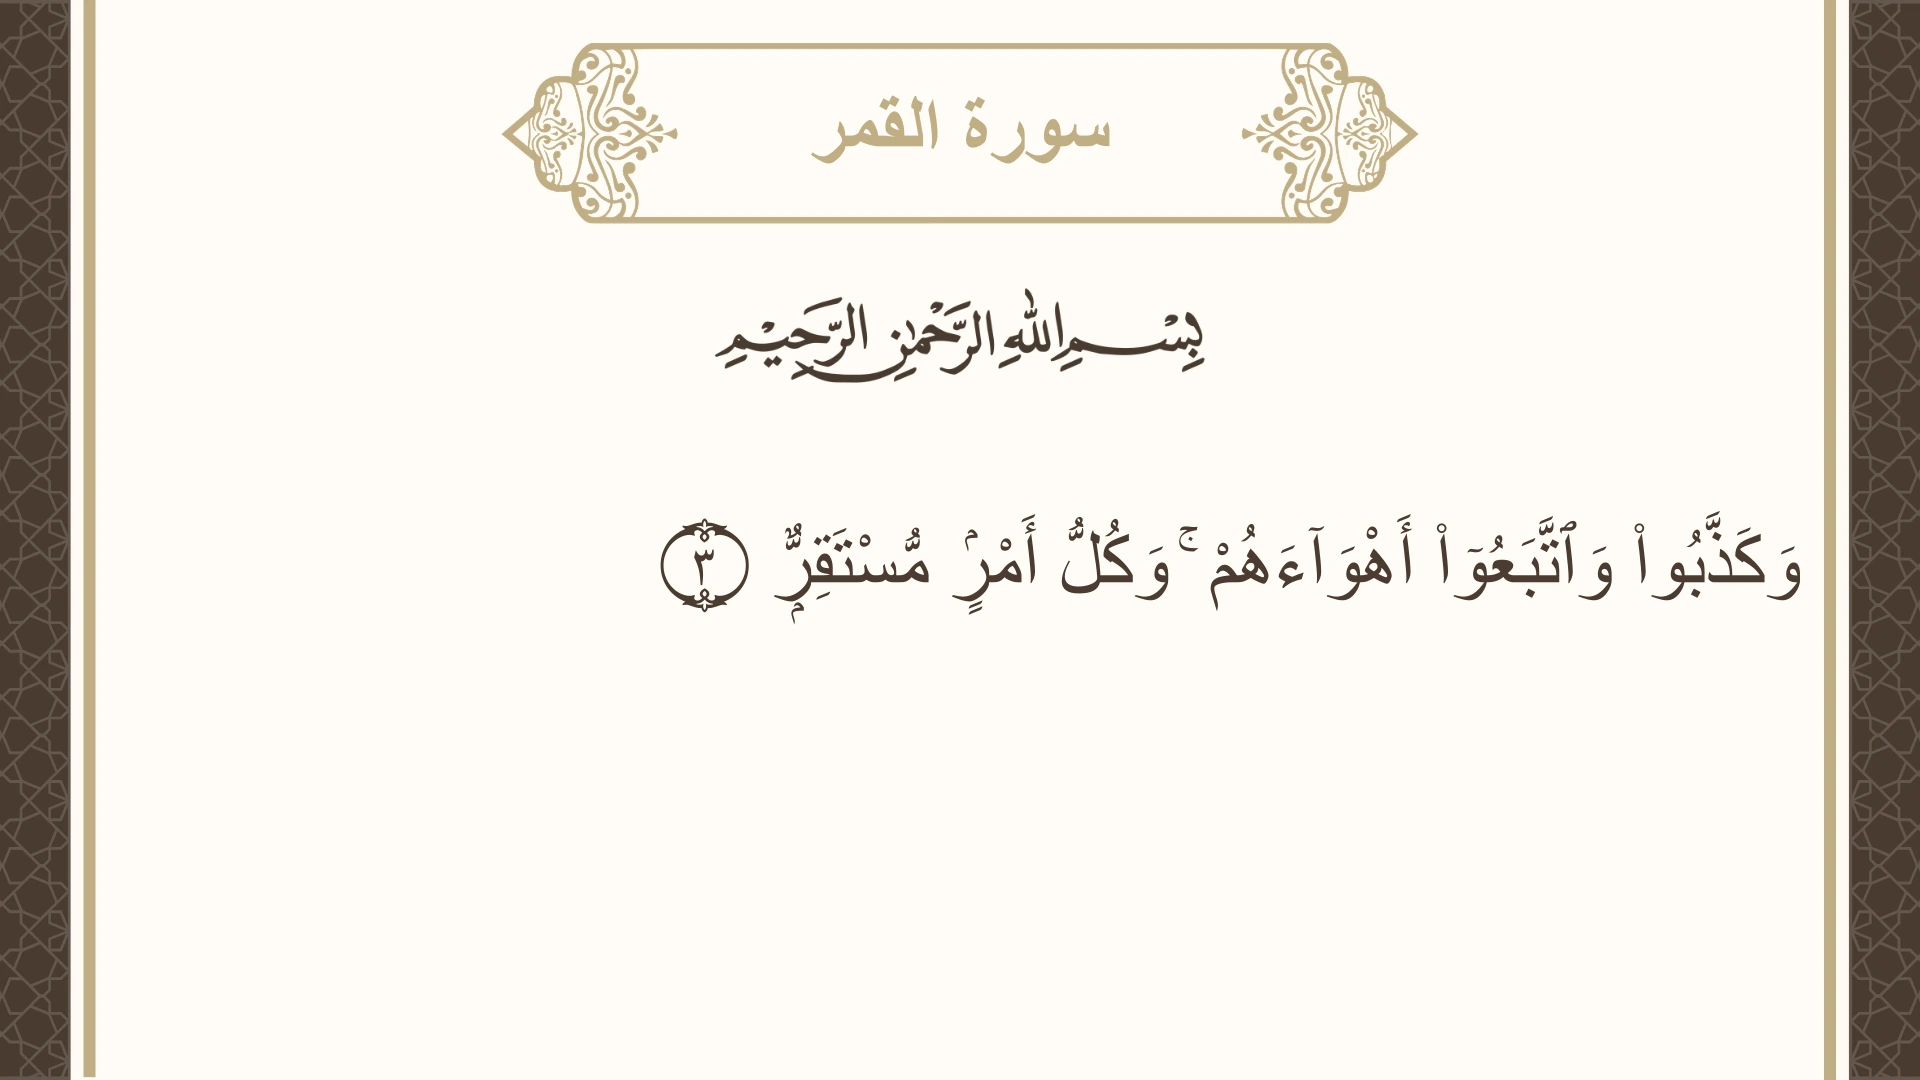 سورة القمر
بِسْمِ اللهِ الرَّحْمٰنِ الرَّحِيْمِ
وَكَذَّبُوا۟ وَٱتَّبَعُوٓا۟ أَهْوَآءَهُمْ ۚ وَكُلُّ أَمْرٍۢ مُّسْتَقِرٌّۭ ۝٣